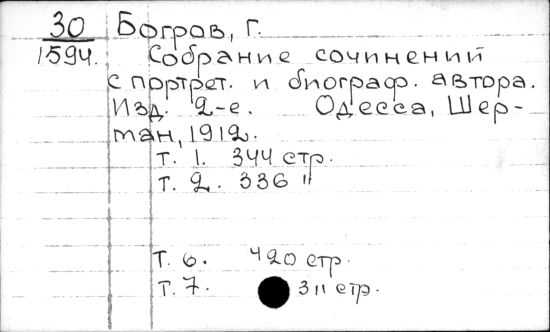 30 Богров, Г.
1594. Собрание сочинений
с портрет. и биограф. автора.
Изд. 2-е. Одесса, Шер-
ман, 1912.
Т. 1. 344 стр.
Т. 2. 336 "
Т. 6. 420 стр.
Т. 7. 311 стр.